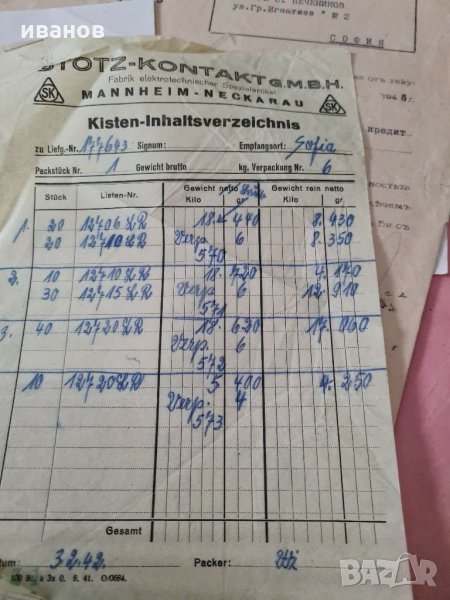 иванов
С. ПЕЧЕНИНОВ
ул.Гр.Игнатиев № 2
СОФИЯ
STOTZ-KONTAKT G.M.B.H.
Fabrik elektrotechnischer Spezialartikel
SK MANNHEIM-NECKARAU SK
Kisten-Inhaltsverzeichnis
zu Liefg.-Nr. 177643 Signum: Empfangsort: Sofia
Packstück Nr. 1 Gewicht brutto kg. Verpackung Nr. 6
Stück Listen-Nr. Gewicht netto Gewicht rein netto
Kilo gr Kilo gr
1. 20 12706 LR 18. 440 8. 430
20 12710 LR Verp. 6 8. 350
570
2. 10 12710 LR 18. 720 4. 170
30 12715 LR Verp. 6 12. 910
571
3. 40 12720 LR 18. 620 17. 060
Verp. 6
572
10 12720 LR 5. 400 4. 250
Verp. 4
573
Gesamt
tum: 3.2.42. Packer:
100 Bl. à 3x 0. 8. 41. O/0664.
кредит
BAZAR